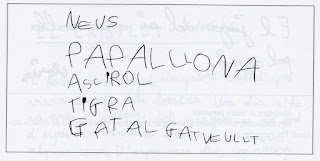 NEUS
PAPALLONA
ASCIROL
TIGRA
GAT AL GATVEULLT